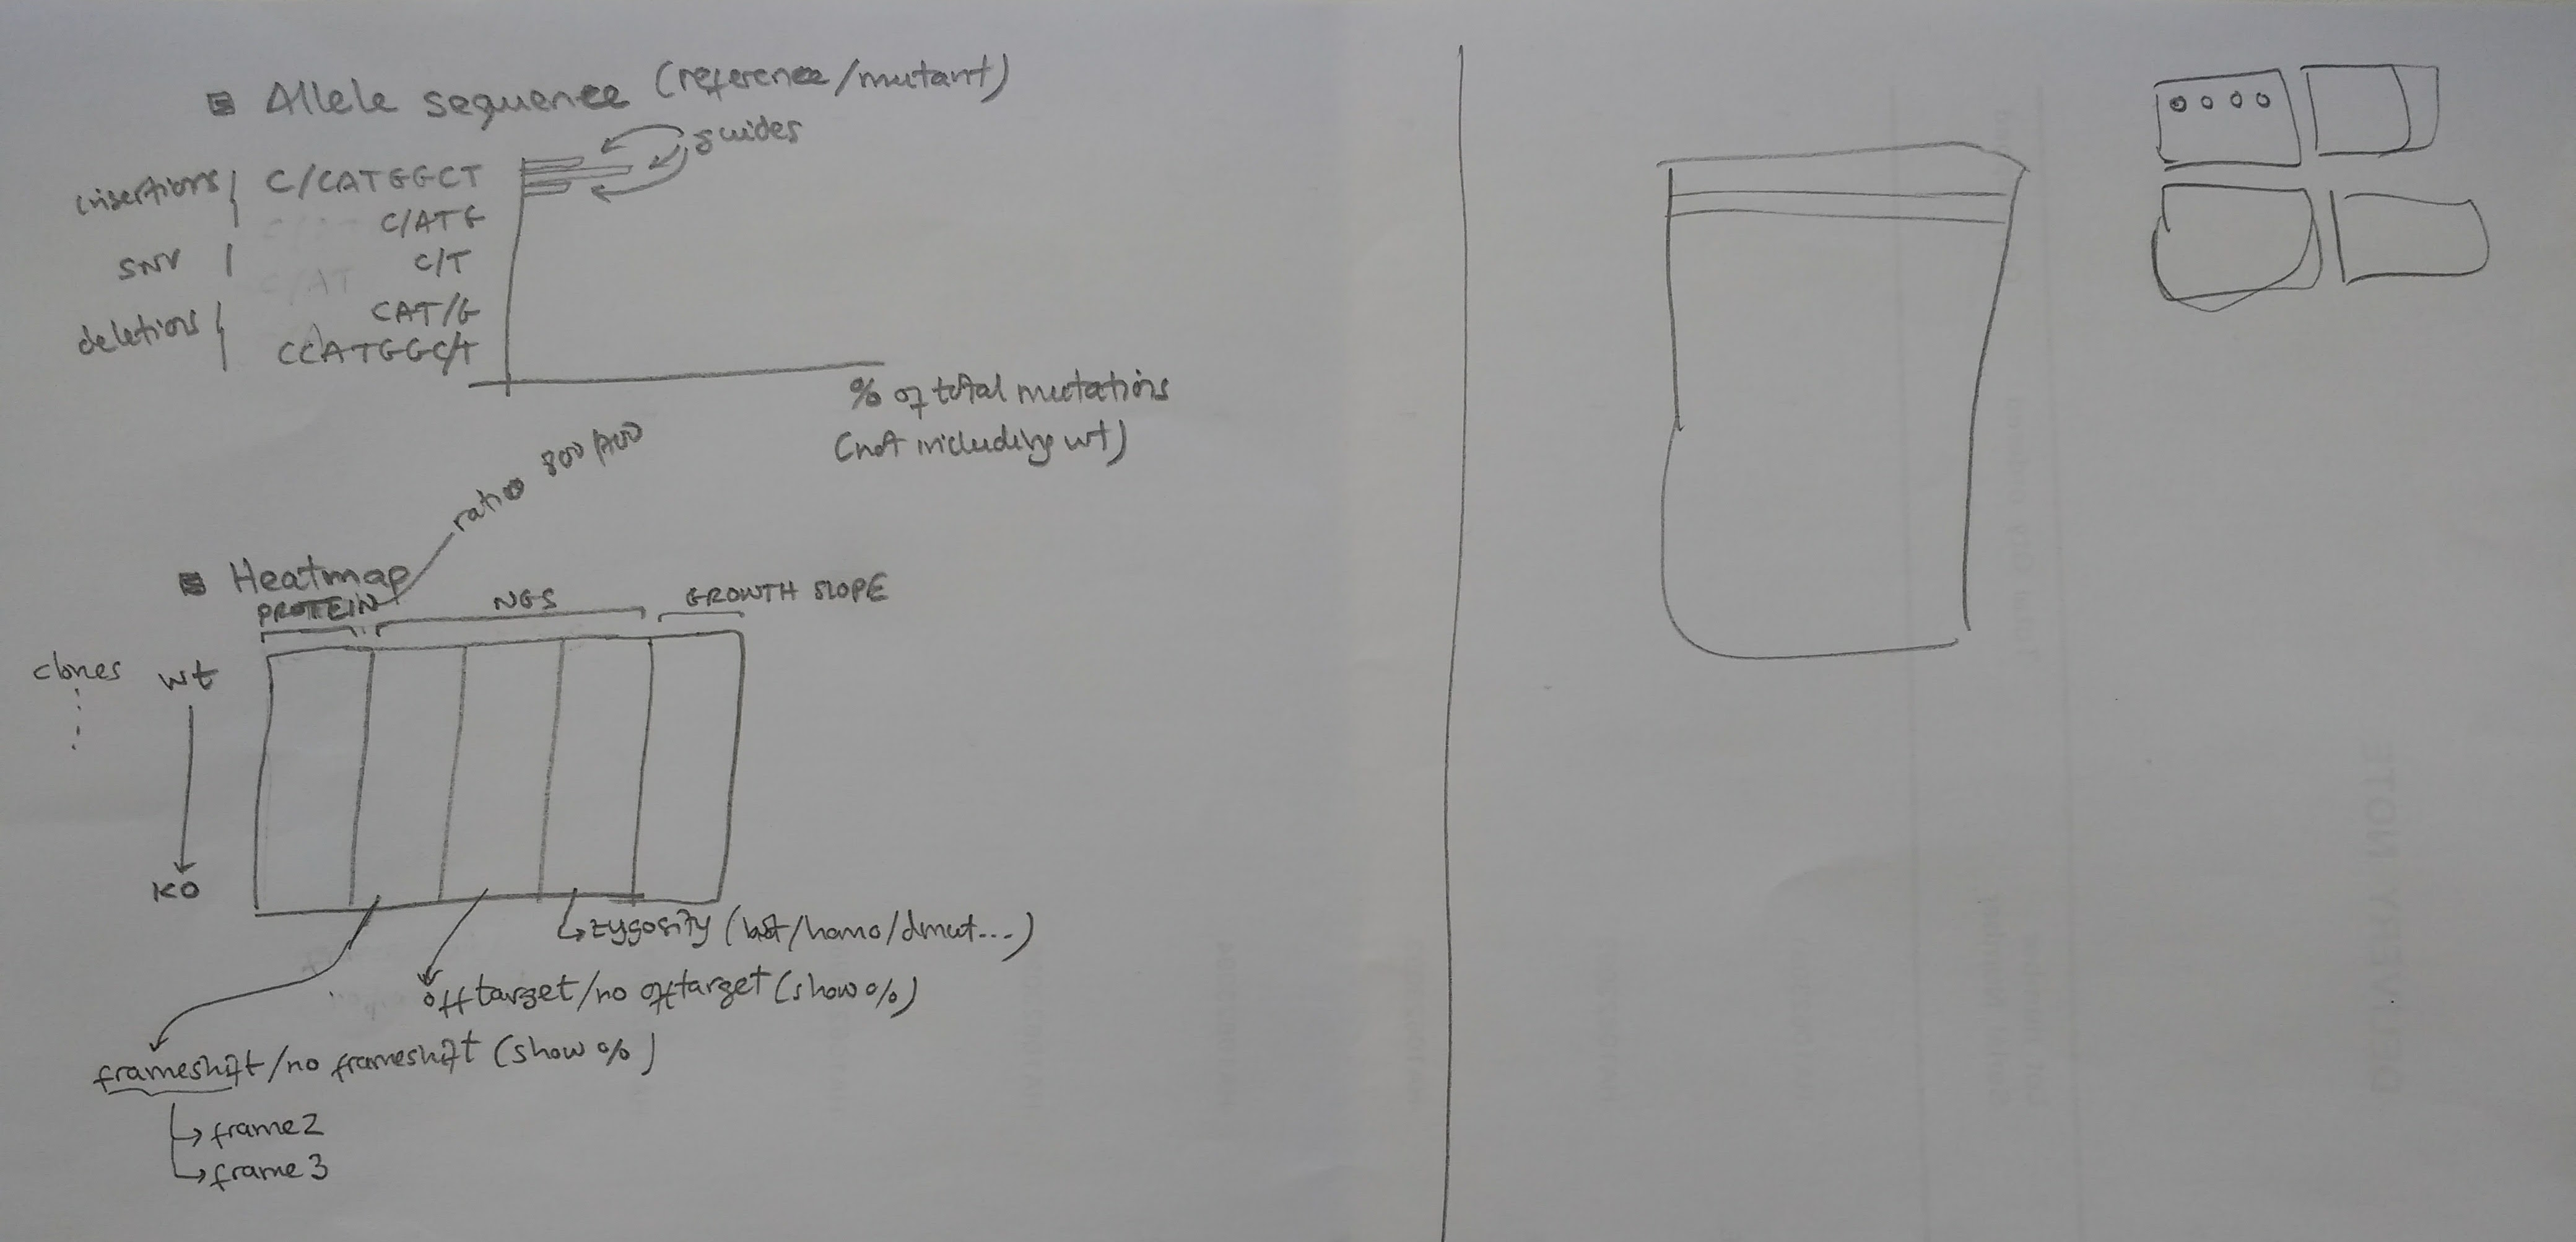 Allele sequence (reference/mutant)
guides
insertions C/CATGGCT
C/ATG
SNV C/T
deletions CAT/G
CCATGGC/T
% of total mutations
(not including wt)
ratio 800/700
Heatmap
PROTEIN NGS GROWTH SLOPE
clones wt
KO
zygosity (het/homo/dmut...)
off target/no off target (show %)
frameshift/no frameshift (show %)
frame 2
frame 3
DELIVERY NOTE